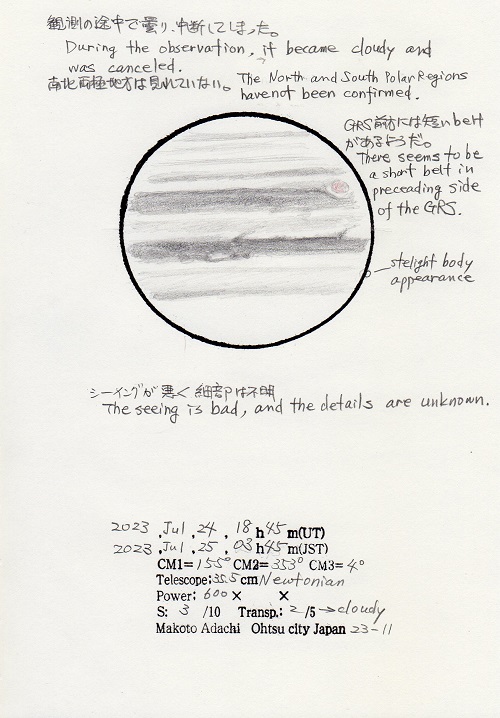 観測の途中で曇り、中断してしまった。
During the observation, it became cloudy and
was canceled.
南北両極地方は見れていない。 The North and South Polar Regions
have not been confirmed.
GRS前方には短いbelt
があるようだ。
There seems to be
a short belt in
preceading side
of the GRS.
stelight body
appearance
シーイングが悪く細部は不明
The seeing is bad, and the details are unknown.
2023 , Jul , 24 , 18 h 45 m(UT)
2023 , Jul , 25 , 03 h 45 m(JST)
CM1= 155° CM2= 353° CM3= 4°
Telescope: 35.5 cm Newtonian
Power: 600 × ×
S: 3 /10 Transp.: 2 /5 → cloudy
Makoto Adachi Ohtsu city Japan 23-11